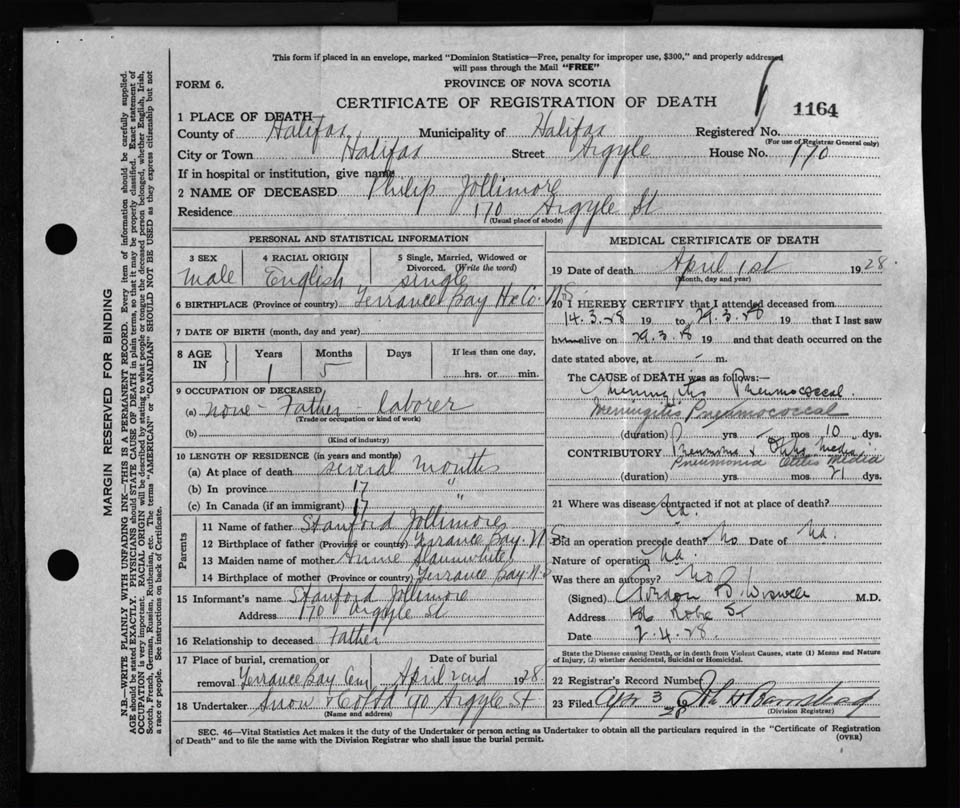 This form if placed in an envelope, marked "Dominion Statistics—Free, penalty for improper use, $300," and properly addressed
will pass through the Mail "FREE"
FORM 6.
PROVINCE OF NOVA SCOTIA
CERTIFICATE OF REGISTRATION OF DEATH
1164
1 PLACE OF DEATH
County of Halifax Municipality of Halifax Registered No.
(For use of Registrar General only)
City or Town Halifax Street Argyle House No. 170
If in hospital or institution, give name
2 NAME OF DECEASED Philip Jollimore
Residence 170 Argyle St
(Usual place of abode)
PERSONAL AND STATISTICAL INFORMATION
3 SEX
male
4 RACIAL ORIGIN
English
5 Single, Married, Widowed or
Divorced. (Write the word)
single
6 BIRTHPLACE (Province or country) Terrance Bay Hx Co. N.S.
7 DATE OF BIRTH (month, day and year)
8 AGE IN
Years Months Days If less than one day,
1 5 hrs. or min.
9 OCCUPATION OF DECEASED
(a) none - Father - laborer
(Trade or occupation or kind of work)
(b)
(Kind of industry)
10 LENGTH OF RESIDENCE (in years and months)
(a) At place of death several months
(b) In province 17 "
(c) In Canada (if an immigrant) 17 "
Parents
11 Name of father Stanford Jollimore
12 Birthplace of father (Province or country) Terrance Bay. N.
13 Maiden name of mother Annie Slaunwhite
14 Birthplace of mother (Province or country) Terrance Bay N.S
15 Informant's name Stanford Jollimore
Address 170 Argyle St
16 Relationship to deceased Father
17 Place of burial, cremation or Date of burial
removal Terrance Bay Cem April 2nd 1928
18 Undertaker Snow & Co Ltd 90 Argyle St
(Name and address)
MEDICAL CERTIFICATE OF DEATH
19 Date of death April 1st 1928.
(Month, day and year)
20 I HEREBY CERTIFY that I attended deceased from
14.3.28 19 to 29.3.28 19 that I last saw
h alive on 29.3.8 19 and that death occurred on the
date stated above, at — m.
The CAUSE of DEATH was as follows:—
Meningitis Pneumococcal
Meningitis Pneumococcal
(duration) yrs. - mos 10 dys.
CONTRIBUTORY Pneumonia & Otitis Media
Pneumonia Otitis Media
(duration) yrs mos 21 dys.
21 Where was disease contracted if not at place of death?
Na.
Did an operation precede death? No Date of Na.
Nature of operation Na.
Was there an autopsy? No
(Signed) Gordon B. Wiswell M.D.
Address 186 Robie St
Date 2.4.28.
State the Disease causing Death, or in death from Violent Causes, state (1) Means and Nature
of Injury, (2) whether Accidental, Suicidal or Homicidal.
22 Registrar's Record Number
23 Filed Apr 3 28
(Division Registrar)
SEC. 46—Vital Statistics Act makes it the duty of the Undertaker or person acting as Undertaker to obtain all the particulars required in the "Certificate of Registration
of Death" and to file the same with the Division Registrar who shall issue the burial permit.
(OVER)
MARGIN RESERVED FOR BINDING
N.B.—WRITE PLAINLY WITH UNFADING INK—THIS IS A PERMANENT RECORD. Every item of information should be carefully supplied.
AGE should be stated EXACTLY. PHYSICIANS should STATE CAUSE OF DEATH in plain terms, so that it may be properly classified. Exact statement of
OCCUPATION is very important. RACIAL ORIGIN will be described by stating to what people or tongue the deceased person belonged, whether English, Irish,
Scotch, French, German, Russian, Ruthenian, etc. The terms "AMERICAN" or "CANADIAN" SHOULD NOT BE USED as they express citizenship but not
a race or people. See instructions on back of Certificate.